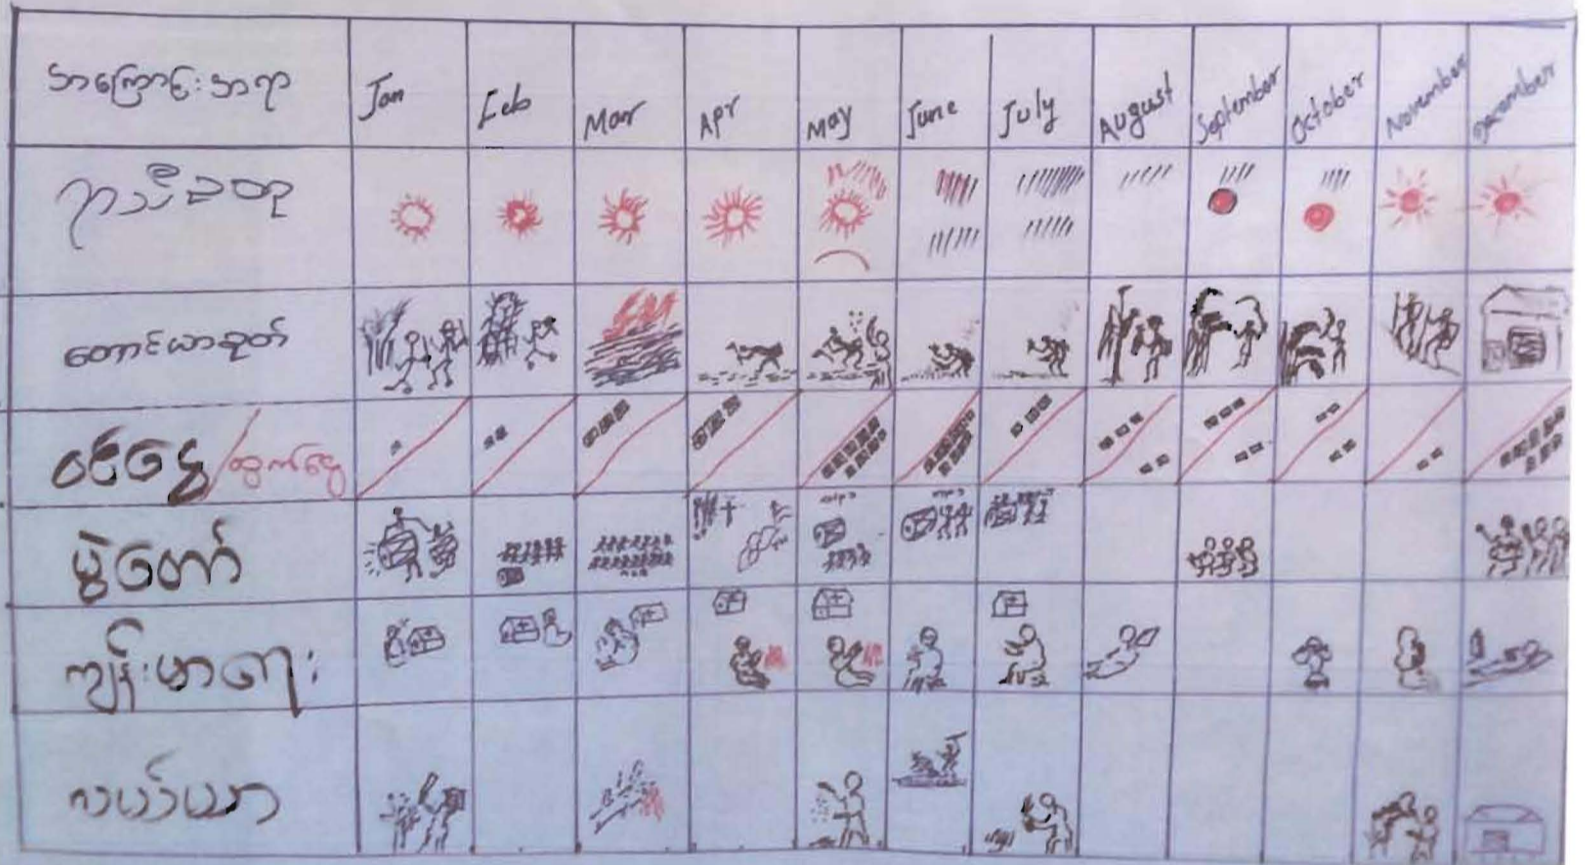 အကြောင်းအရာ Jan Feb Mar Apr May June July August September October November December
ရာသီဥတု
တောင်ယာခုတ်
ဝင်ငွေ/ထွက်ငွေ
ပွဲတော်
ကျန်းမာရေး
လယ်ယာ